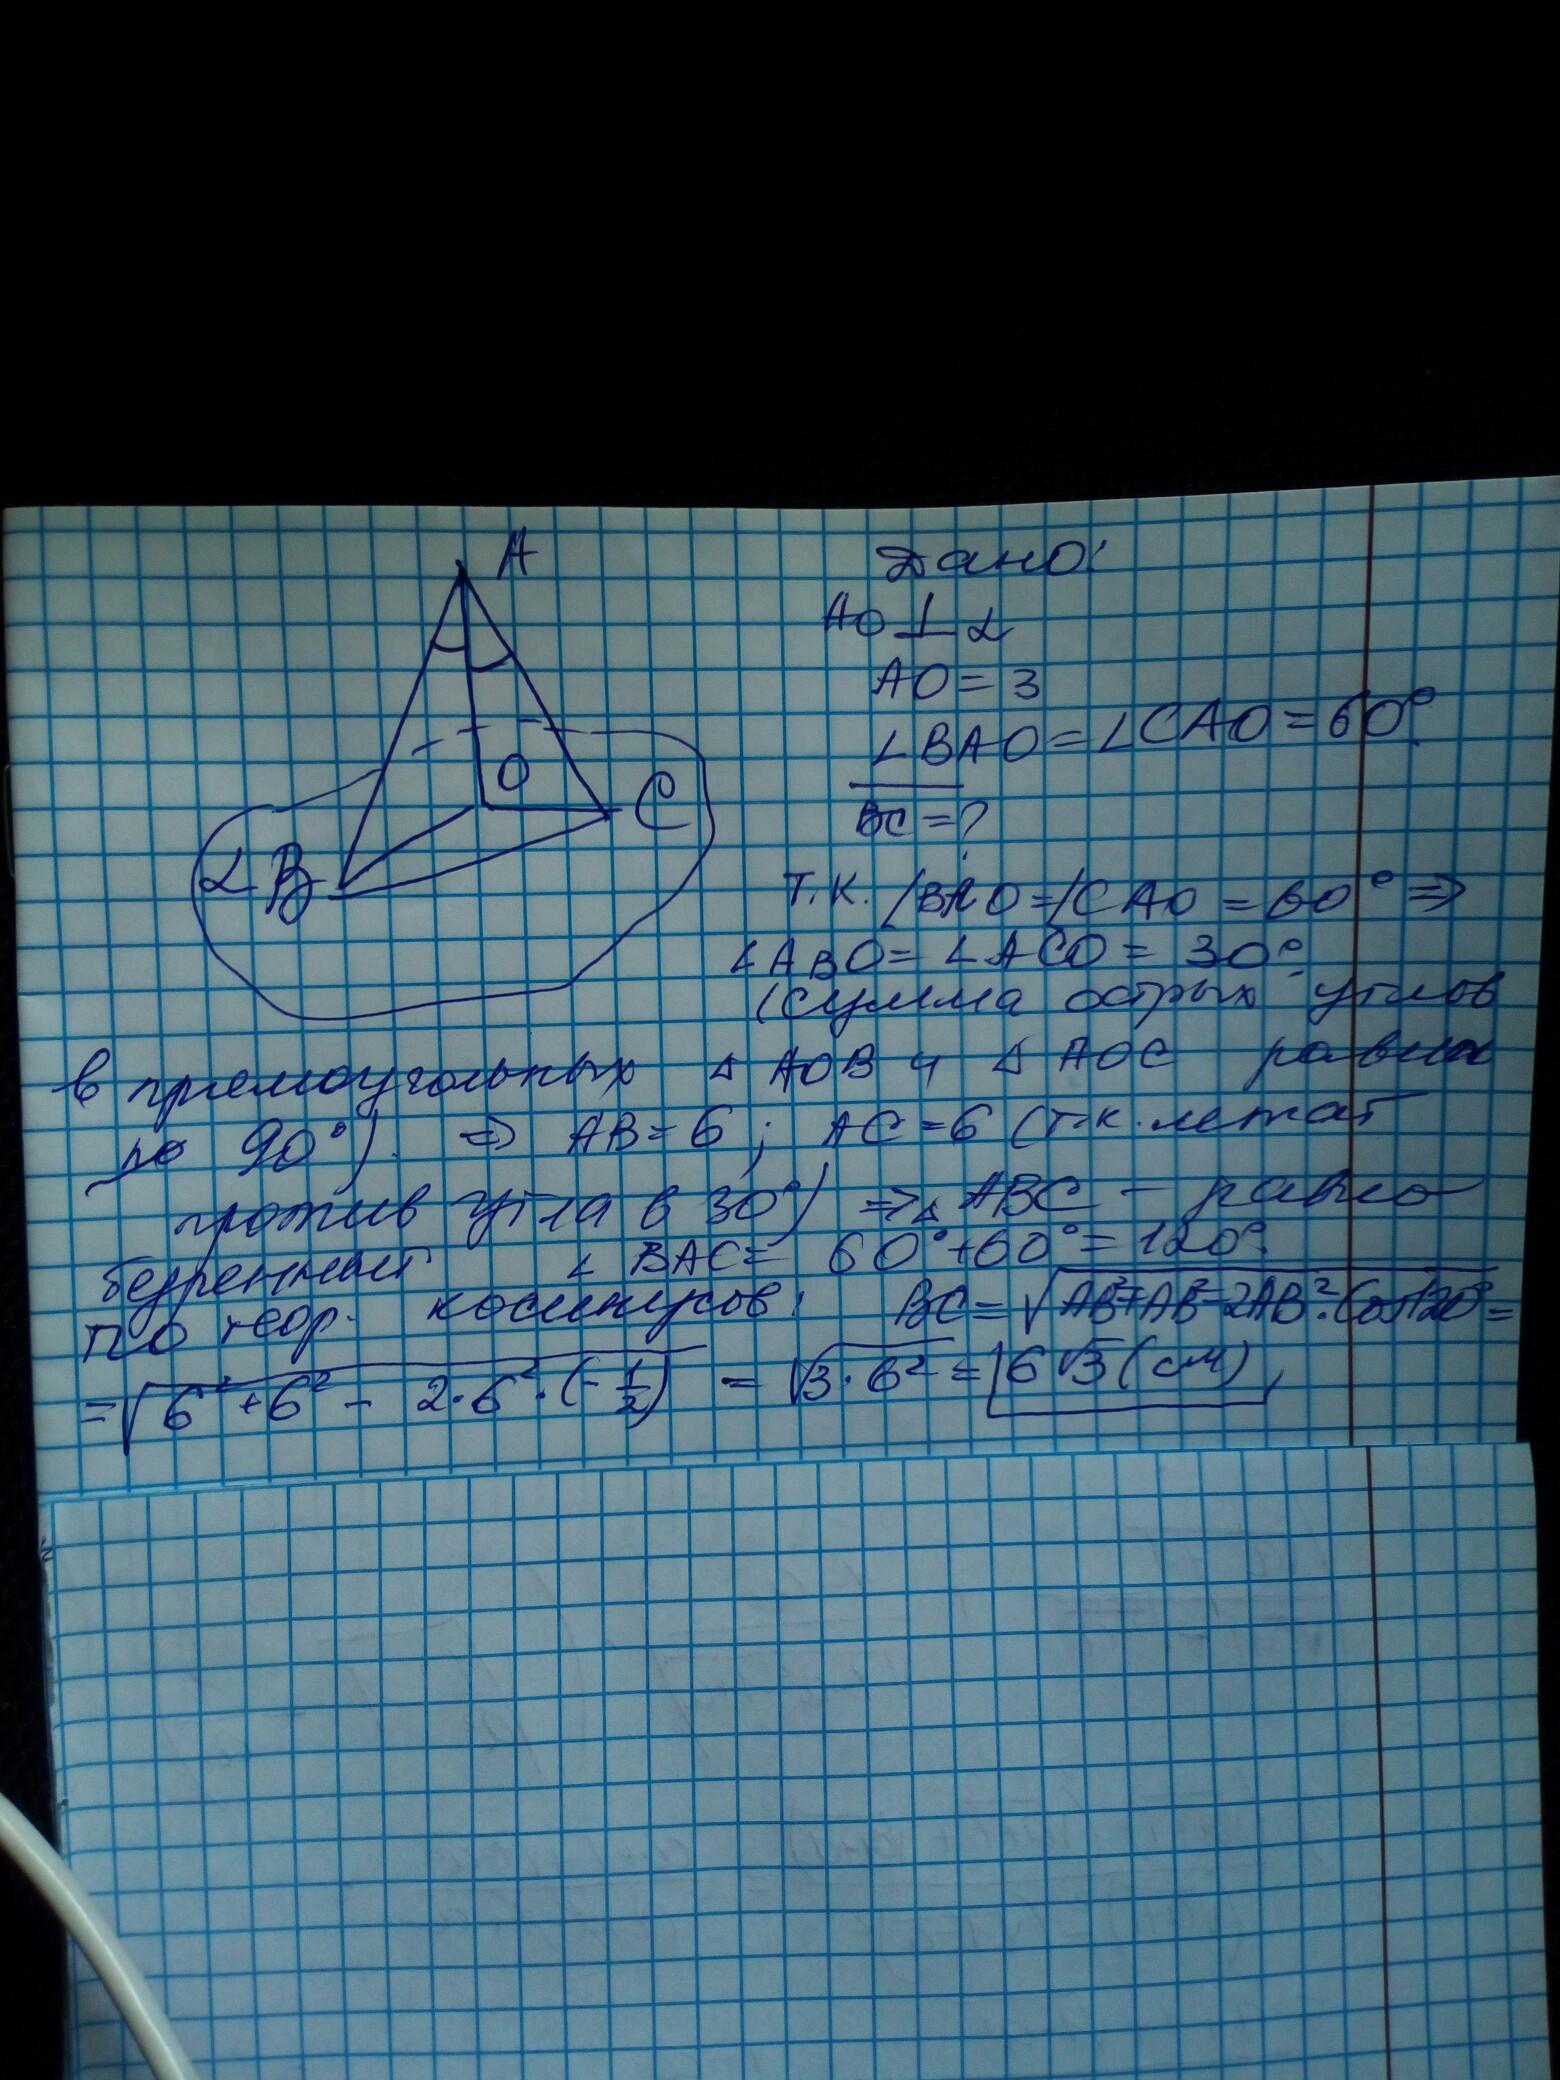 A
O
C
α B
Дано:
AO ⊥ α
AO = 3
∠BAO = ∠CAO = 60°
BC = ?
Т.к. ∠BAO = ∠CAO = 60° ⇒
∠ABO = ∠ACO = 30°
(Сумма острых углов
в прямоугольных △ AOB и △ AOC равна
по 90°). ⇒ AB = 6; AC = 6 (т.к. лежат
против угла в 30°) ⇒ △ ABC - равно
бедренный ∠ BAC = 60° + 60° = 120°
По теор. косинусов: BC = √AB²+AB²-2AB²·Cos120° =
= √6² + 6² - 2·6²·(-1/2) = √3·6² = 6√3 (см)